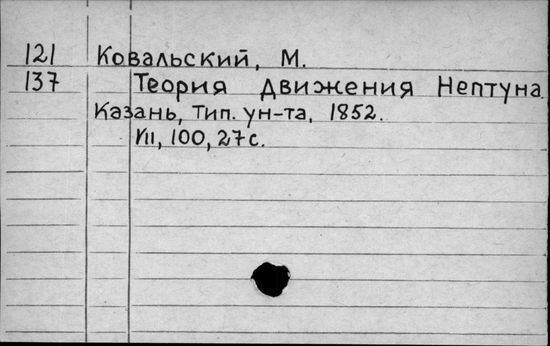 121 Ковальский, М.
137 Теория движения Нептуна.
Казань, Тип. ун-та, 1852.
VII, 100, 27 с.